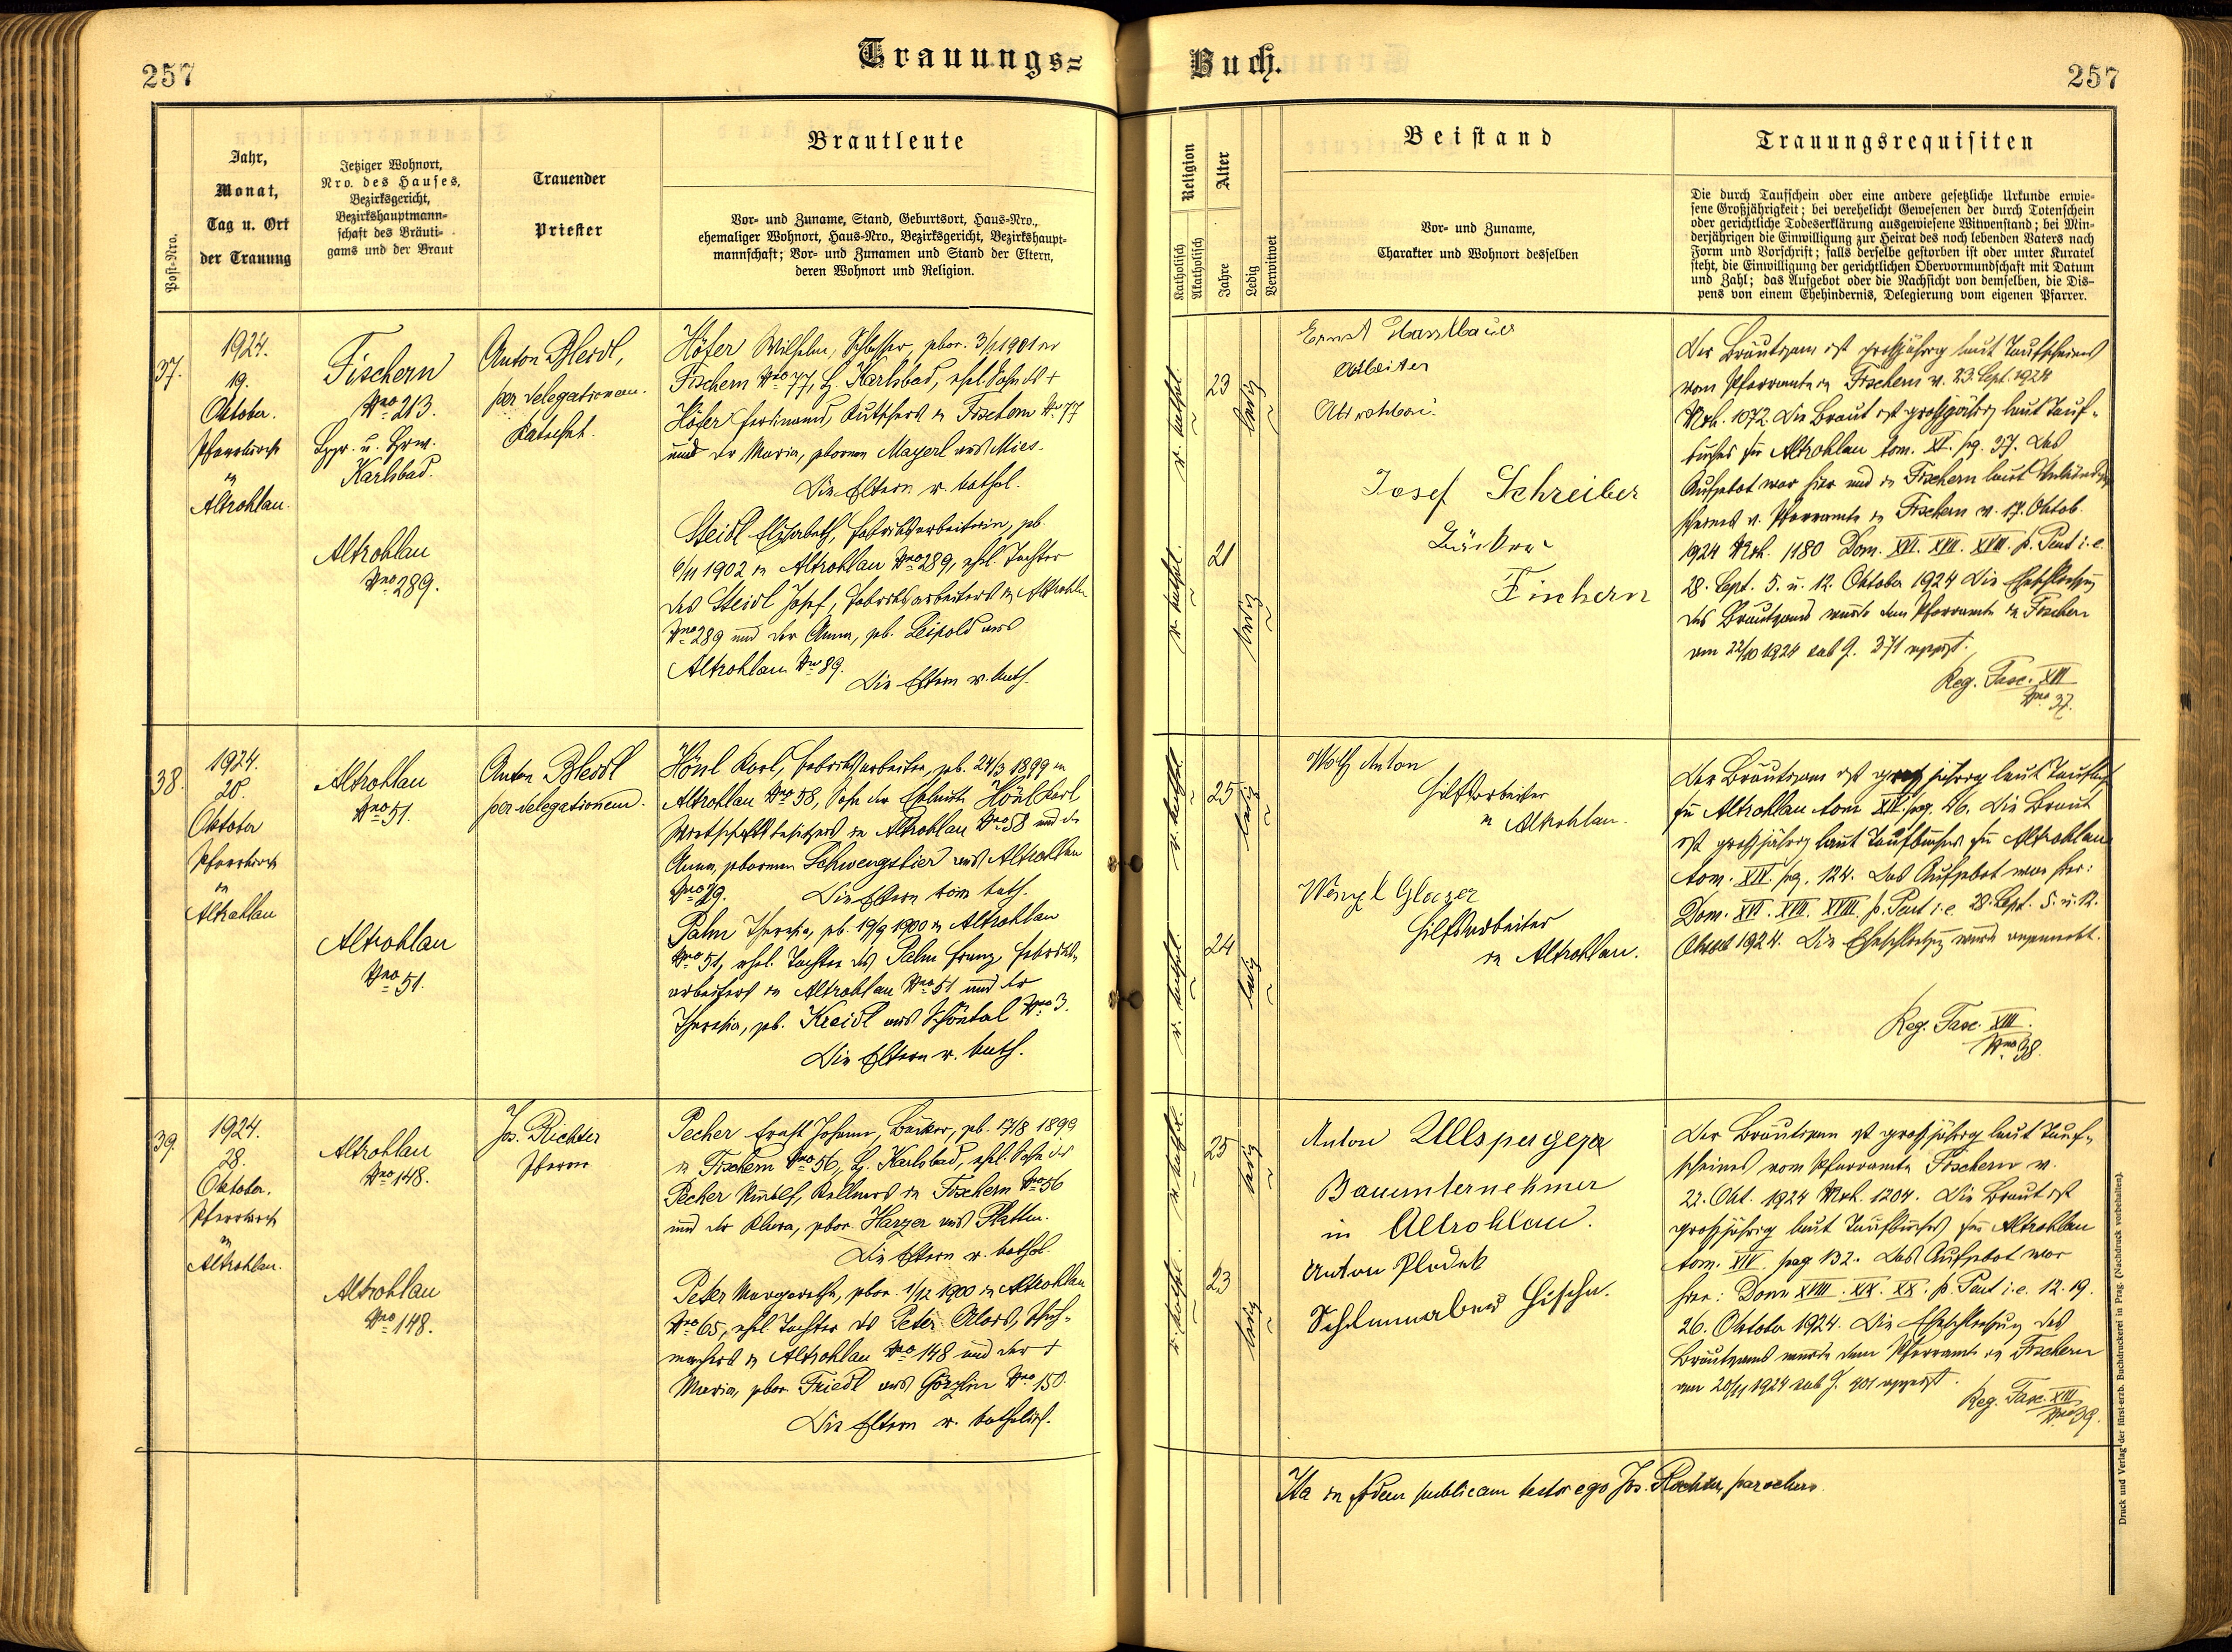 257
Trauungs=
Buch.
257
Post-Nro.
Jahr,
Monat,
Tag u. Ort
der Trauung
Jetziger Wohnort,
Nro. des Hauses,
Bezirksgericht,
Bezirkshauptmann=
schaft des Bräuti=
gams und der Braut
Trauender
Priester
Brautleute
Vor= und Zuname, Stand, Geburtsort, Haus=Nro.,
ehemaliger Wohnort, Haus=Nro., Bezirksgericht, Bezirkshaupt=
mannschaft; Vor= und Zunamen und Stand der Eltern,
deren Wohnort und Religion.
Religion
Katholisch
Akatholisch
Alter
Jahre
Ledig
Verwitwet
Beistand
Vor= und Zuname,
Charakter und Wohnort desselben
Trauungsrequisiten
Die durch Taufschein oder eine andere gesetzliche Urkunde erwie=
sene Großjährigkeit; bei verehelicht Gewesenen der durch Totenschein
oder gerichtliche Todeserklärung ausgewiesene Witwenstand; bei Min=
derjährigen die Einwilligung zur Heirat des noch lebenden Vaters nach
Form und Vorschrift; falls derselbe gestorben ist oder unter Kuratel
steht, die Einwilligung der gerichtlichen Obervormundschaft mit Datum
und Zahl; das Aufgebot oder die Nachsicht von demselben, die Dis=
pens von einem Ehehindernis, Delegierung vom eigenen Pfarrer.
37.
1924.
19.
Oktober.
Pfarrkirche
in
Altrohlau.
Fischern
Nro 213.
Karlsbad.
Altrohlau
Nro 289.
Anton Bleidl,
per delegationem.
Katechet.
Höfer Wilhelm, Schlosser, gebor. 3/1 1901 in
Fischern Nro 77, B. Karlsbad, ehel. Sohn des +
Höfer Ferdinand, Kutschers in Fischern No 77
und der Maria, geborenen Mayerl aus Mies.
Die Eltern r. kathol.
Steidl Elisabeth, Fabriksarbeiterin, geb.
6/11 1902 in Altrohlau Nro 289, ehel. Tochter
des Steidl Josef, Fabriksarbeiters in Altrohlau
Nro 289 und der Anna, geb. Leipold aus
Altrohlau Nro 89.
Die Eltern r. kath.
r. kathol.
23
ledig
r. kathol.
21
ledig
Ernst
Arbeiter
Altrohlau.
Josef Schreiber
Bäcker
Fischern
Der Bräutigam ist großjährig laut Taufscheines
vom Pfarramte in Fischern v. 23. Sept. 1924
Nrb. 1072. Die Braut ist großjährig laut Tauf=
buches für Altrohlau tom. XI. pg. 37. Das
Aufgebot war hier und in Fischern laut
scheines v. Pfarramte in Fischern v. 17. Oktob.
1924 Nrb. 1180 Dom. XVI. XVII. XVIII. p. Pent i. e.
28. Sept. 5. u. 12. Oktober 1924 Die Eheschließung
des Bräutigams wurde dem Pfarramte in Fischern
am 22/10 1924 sub J. 371 angezt.
Reg. Fasc. XIII
Nro 37.
38.
1924.
20.
Oktober
Pfarrkirche
in
Altrohlau
Altrohlau
Nro 51.
Altrohlau
Nro 51.
Anton Bleidl
per delegationem.
Hönl Karl, Fabriksarbeiter, geb. 24/3 1899 in
Altrohlau Nro 58, Sohn der Eheleute Hönl Karl
Wirtschaftsbesitzers in Altrohlau Nro 58 und der
Anna, geborenen Schwengsbier aus Altrohlau
Nro 19. Die Eltern röm. kath.
Palm Theresia, geb. 19/9 1900 in Altrohlau
Nro 51, ehel. Tochter des Palm Franz, Fabriks=
arbeiters in Altrohlau Nro 51 und der
Theresia, geb. Kreidl aus Schöntal Nro 3.
Die Eltern r. kath.
r. kathol.
25
ledig
r. kathol.
24
ledig
Anton
Hilfsarbeiter
in Altrohlau.
Wenzl Glaser
Hilfsarbeiter
in Altrohlau.
Der Bräutigam ist großjährig laut Taufbuch
für Altrohlau tom XIV. pag. 46. Die Braut
ist großjährig laut Taufbuches für Altrohlau
tom. XIV. pag. 124. Das Aufgebot war hier:
Dom. XVI. XVII. XVIII. p. Pent i. e. 28. Sept. 5. u. 12.
Oktob 1924. Die Eheschließung wurde angemerkt.
Reg. Fasc. XIII.
Nro 38.
39.
1924.
28.
Oktober.
Pfarrkirche
in
Altrohlau.
Altrohlau
Nro 148.
Altrohlau
Nro 148.
Jos. Richter
Pfarrer
Pecher Ernst Johann, Bäcker, geb. 17/8 1899
in Fischern Nro 56, B. Karlsbad, ehel. Sohn des
Pecher Rudolf, Kellners in Fischern Nro 56
und der Klara, gebor. Harzer aus Platten.
Die Eltern r. kathol.
Peter Margaretha, gebor. 1/12 1900 in Altrohlau
Nro 65, ehel. Tochter des Peter Alois, Schuh=
machers in Altrohlau Nro 148 und der +
Maria, gebor. Friedl aus Nro 150.
Die Eltern r. katholisch.
r. kathol.
25
ledig
r. kathol.
23
ledig
Anton Ullsperger
Bauunternehmer
in Altrohlau.
Anton Plodek
Der Bräutigam ist großjährig laut Tauf=
scheines vom Pfarramte Fischern v.
22. Okt. 1924 Nrb. 1204. Die Braut ist
großjährig laut Taufbuches für Altrohlau
tom. XIV. pag 132. Das Aufgebot war
hier: Dom XVIII. XIX. XX. p. Pent i. e. 12. 19.
26. Oktober 1924. Die Eheschließung des
Bräutigams wurde dem Pfarramte in Fischern
am 20/11 1924 sub J. 401 angezt.
Reg. Fasc. XIII
Nro 39.
Ita in fidem publicam testor ego Jos. Richter, parochus.
Druck und Verlag der fürst-erzb. Buchdruckerei in Prag. (Nachdruck vorbehalten).